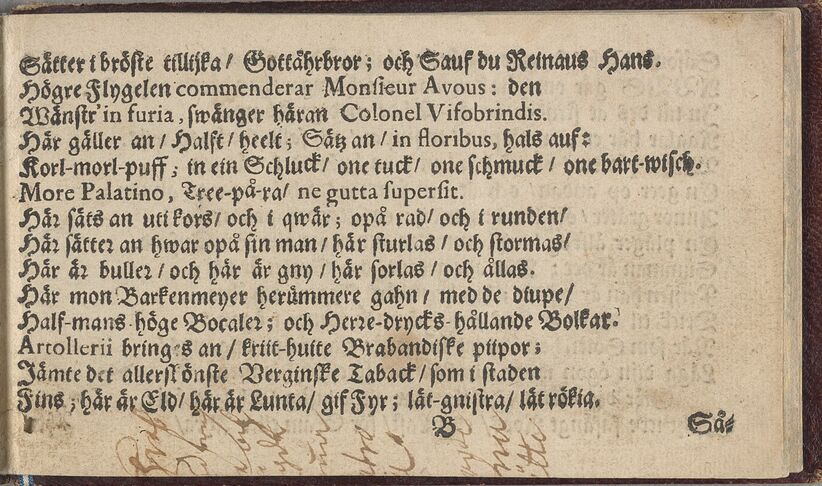 Sätter i bröste tillijka/ Gottåhrbror; och Sauf du Reinaus Hans.
Högre Flygelen commenderar Monsieur Avous: den
Wänstr' in furia, swänger häran Colonel Vifobrindis.
Här gäller an/ Halft/ heelt; Sätz an/ in floribus, hals auf:
Korl-morl-puff; in ein Schluck/ one tuck/ one schmuck/ one bart-wisch.
More Palatino, Tree-på-ra/ ne gutta supersit.
Här säts an uti kors/ och i qwär; opå rad/ och i runden/
Här sätter an hwar opå sin man/ här sturlas/ och stormas/
Här är buller/ och här är gny/ här sorlas/ och ållas.
Här mon Barkenmeyer herümmere gahn/ med de diupe/
Half-mans höge Bocaler; och Herre-drycks-hållande Bolkar.
Artollerii brings an/ kriit-huite Brabandiske piipor;
Jämte det allerskönste Verginske Taback/ som i staden
Fins; här är Eld/ här är Lunta/ gif Fyr; lät-gnistra/ lät rökia.
B Så-